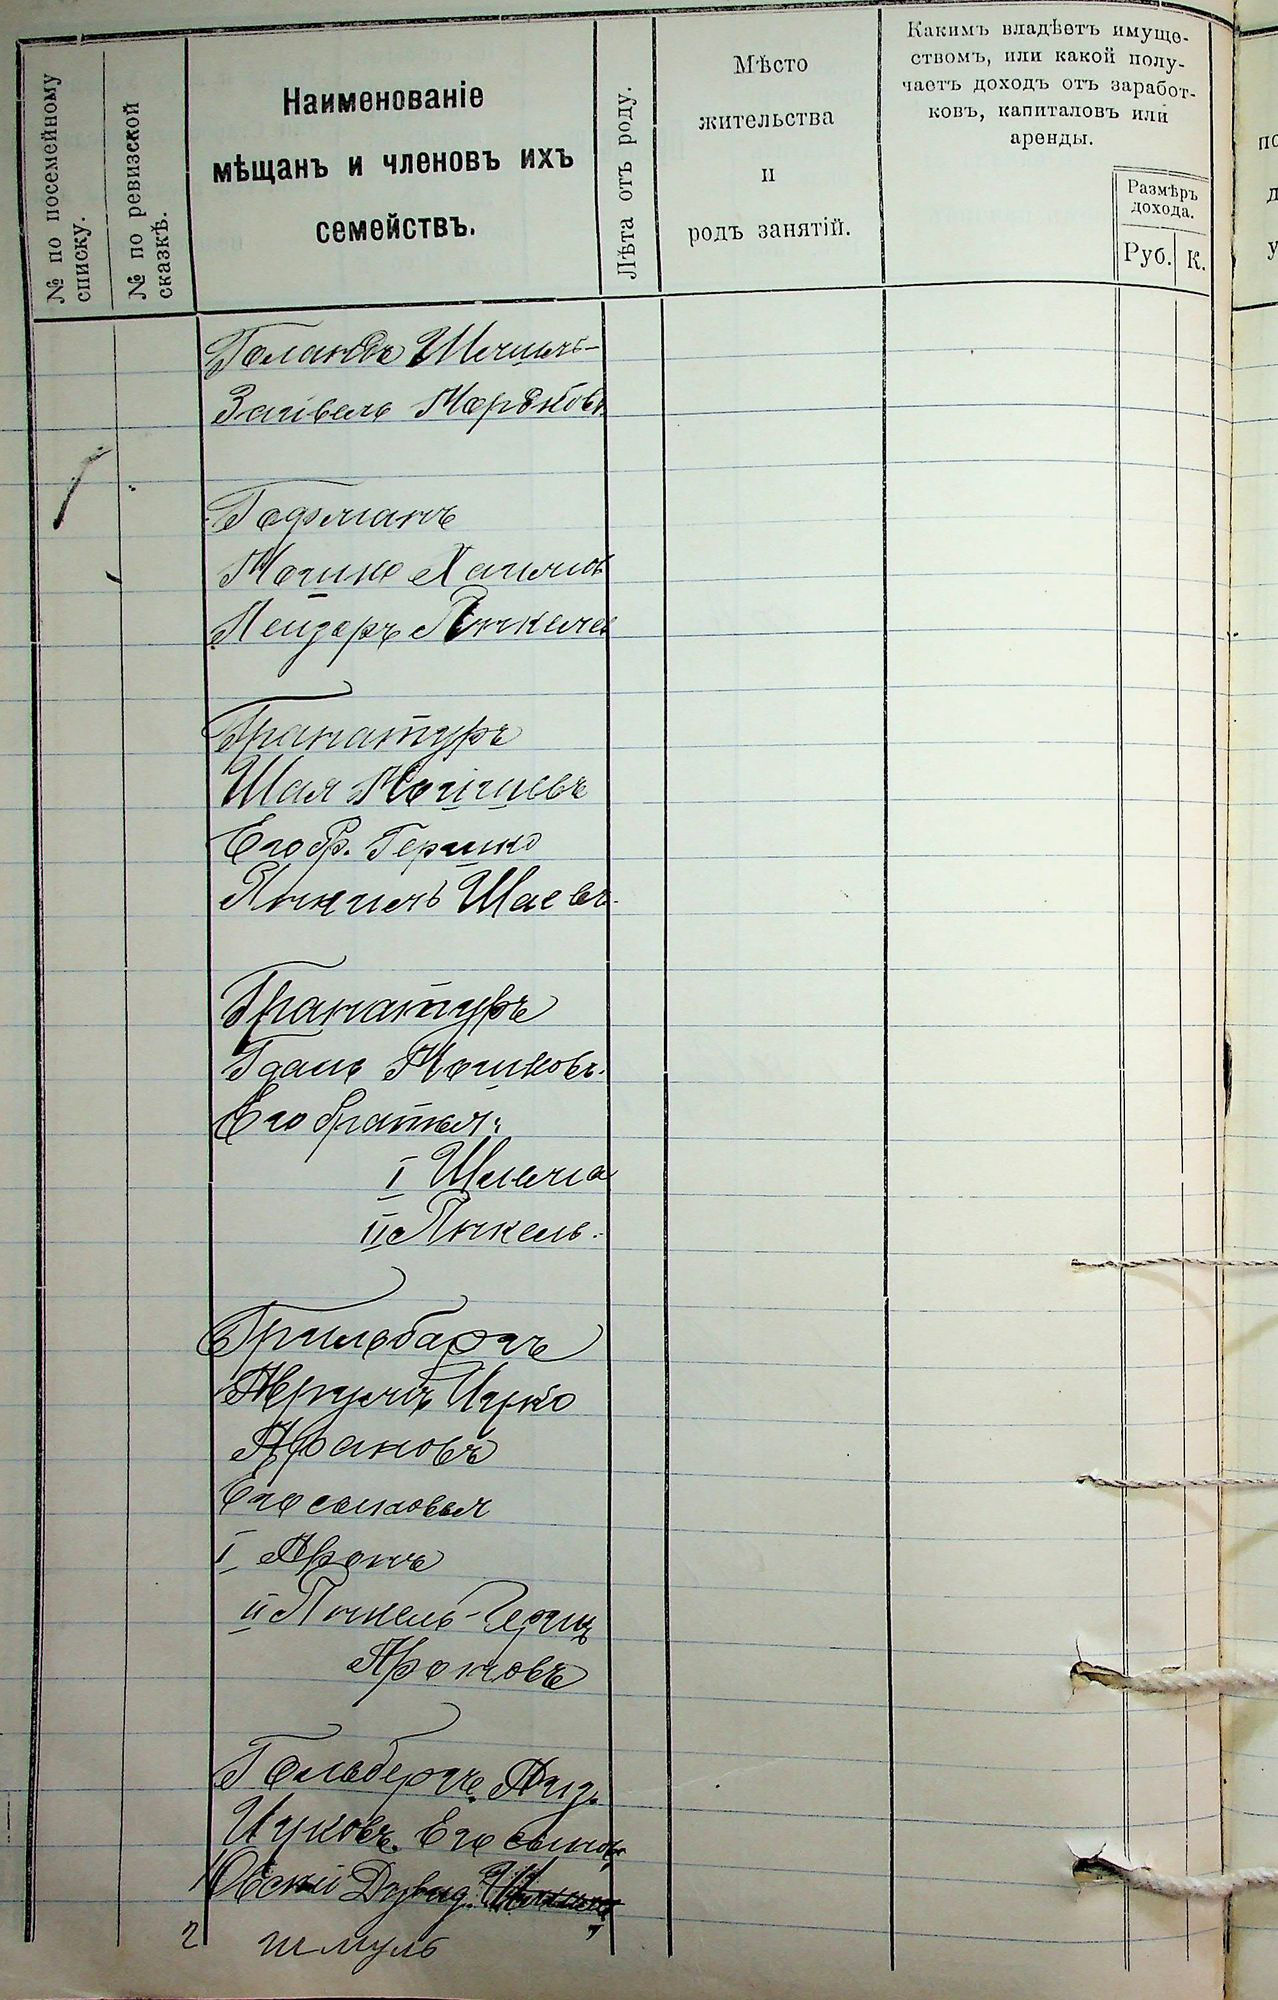 № по посемейному
списку.
№ по ревизской
сказкѣ.
Наименованіе
мѣщанъ и членовъ ихъ
семействъ.
Лѣта отъ роду.
Мѣсто
жительства
и
родъ занятій.
Какимъ владѣетъ имуще-
ствомъ, или какой полу-
чаетъ доходъ отъ заработ-
ковъ, капиталовъ или
аренды.
Размѣръ
дохода.
Руб. К.
Голандъ
Зайвель
Гофманъ
Мошко Хаимов
Лейзеръ Янкеле
Гранатуръ
Шая Мошковъ
Его бр. Гершко
Янкель Шаевъ.
Гранатуръ
Мошковъ.
Его братья:
I Шлема
II Янкель.
Грильбархъ
Аврумъ Ицко
Ароновъ
Его сыновья
I Аронъ
II Янкель-Герш
Ароновъ
Гольбергъ.
Ицковъ. Его сынов
1 Овсей Дувид.
2 шмуль